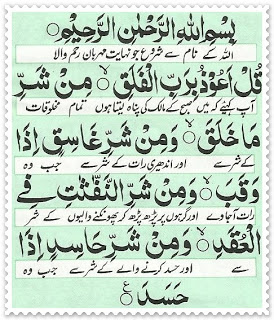 بِسْمِ اللهِ الرَّحْمٰنِ الرَّحِيْمِ
اللہ کے نام سے شروع جو نہایت مہربان رحم والا
قُلْ اَعُوْذُ بِرَبِّ الْفَلَقِ ۙ مِنْ شَرِّ
آپ کہیئے کہ میں صبح کے مالک کی پناہ لیتا ہوں تمام مخلوقات
مَا خَلَقَ ۙ وَمِنْ شَرِّ غَاسِقٍ اِذَا
کے شر سے اور اندھیری رات کے شر سے جب وہ
وَقَبَ ۙ وَمِنْ شَرِّ النَّفّٰثٰتِ فِے
رات آجاوے اور گرہوں پر پڑھ پڑھ کر پھونکنے والیوں کے شر
الْعُقَدِ ۙ وَمِنْ شَرِّ حَاسِدٍ اِذَا
سے اور حسد کرنے والے کے شر سے جب وہ
حَسَدَ ۧ